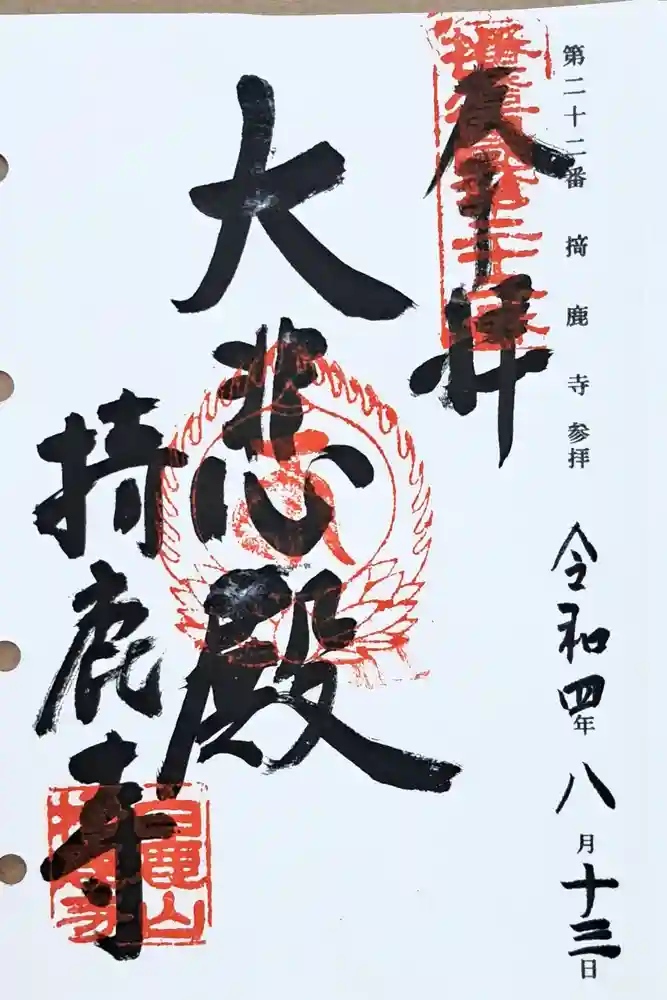 第二十二番 掎鹿寺参拝
令和四年八月十三日
奉拝
大悲殿
掎鹿寺
白鹿山